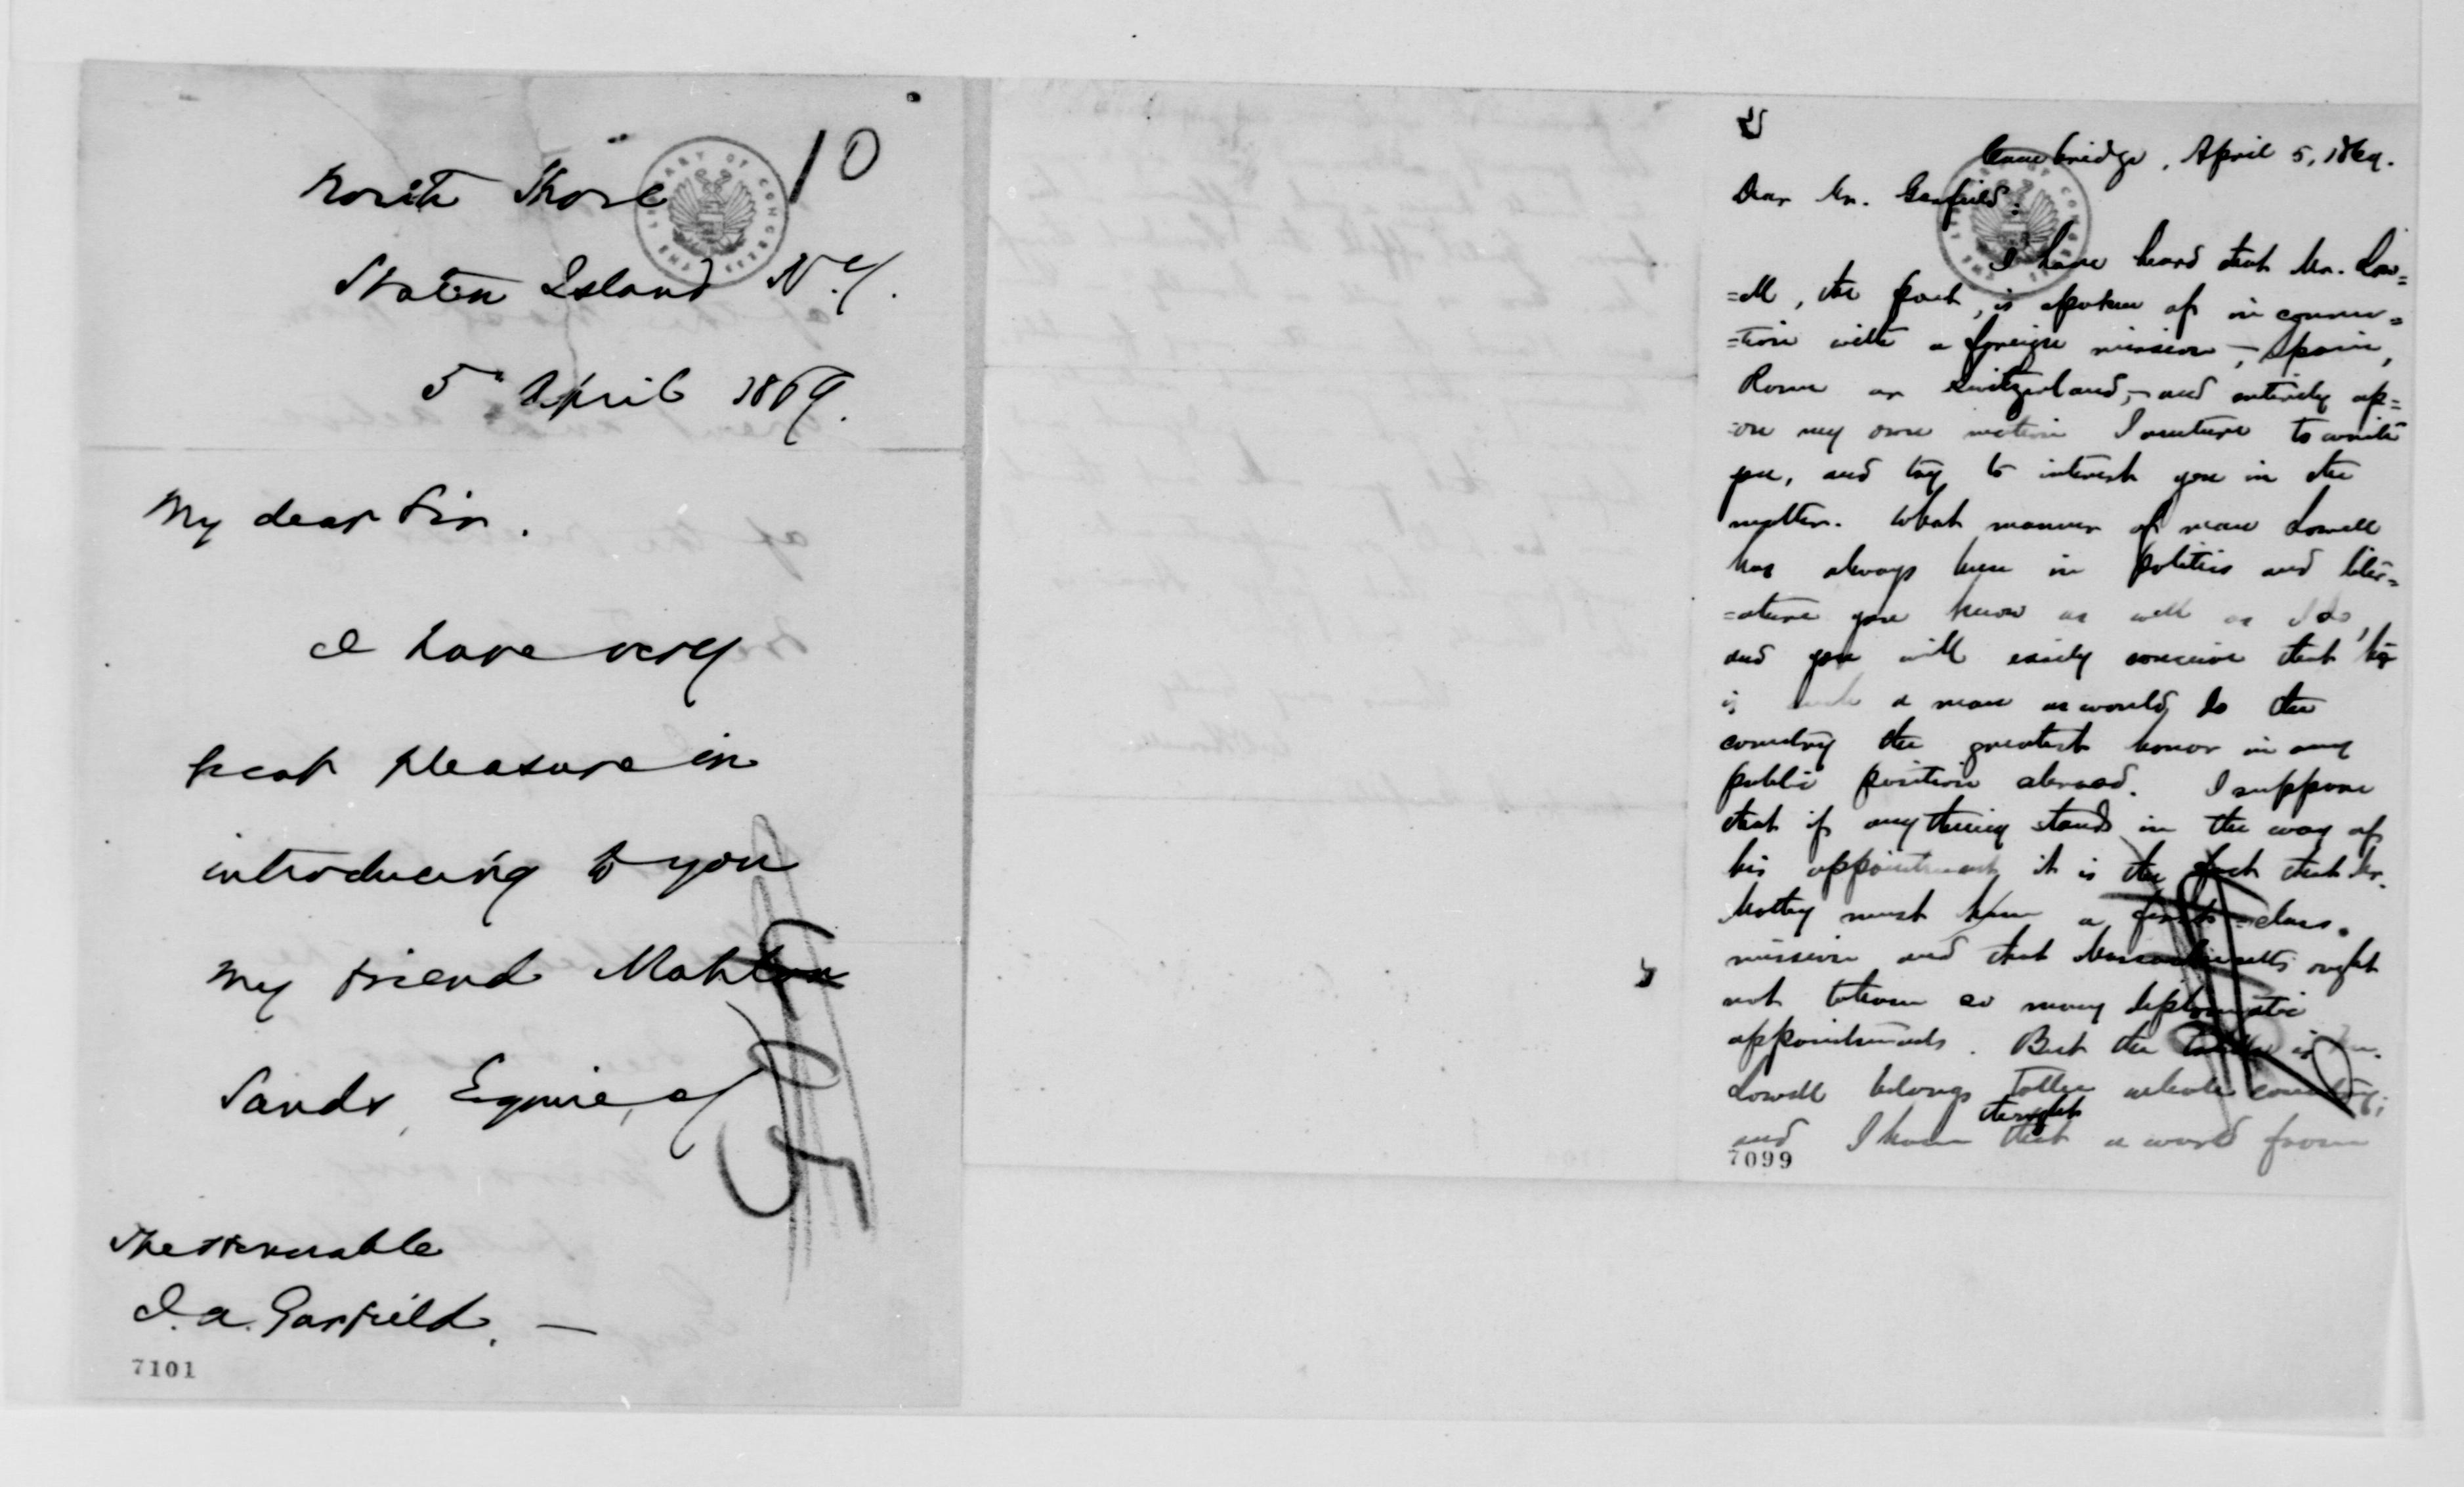 10
North Shore
Staten Island N.Y.
5" April 1869.
My dear Sir.
I have very
great pleasure in
introducing to you
my friend Mahlon
Sands, Esquire, of
The Honorable
J. A. Garfield. —
7101
THE LIBRARY OF CONGRESS
Cambridge, April 5, 1869.
Dear Mr. Garfield:
I have heard that Mr. Low=
=ell, the poet, is spoken of in connec=
=tion with a foreign mission,—Spain,
Rome or Switzerland,—and entirely up=
=on my own motion I venture to write
you, and try to interest you in the
matter. What manner of man Lowell
has always been in politics and liter=
=ature you know as well as I do,
and you will easily conceive that he
is such a man as would do the
country the greatest honor in any
public position abroad. I suppose
that if any thing stands in the way of
his appointment it is the fact that Mr.
Motley must have a first-class
mission and that Massachusetts ought
not to have so many diplomatic
appointments. But the is Mr.
Lowell belongs to the whole country;
thought
and I have that a word from
7099
THE LIBRARY OF CONGRESS